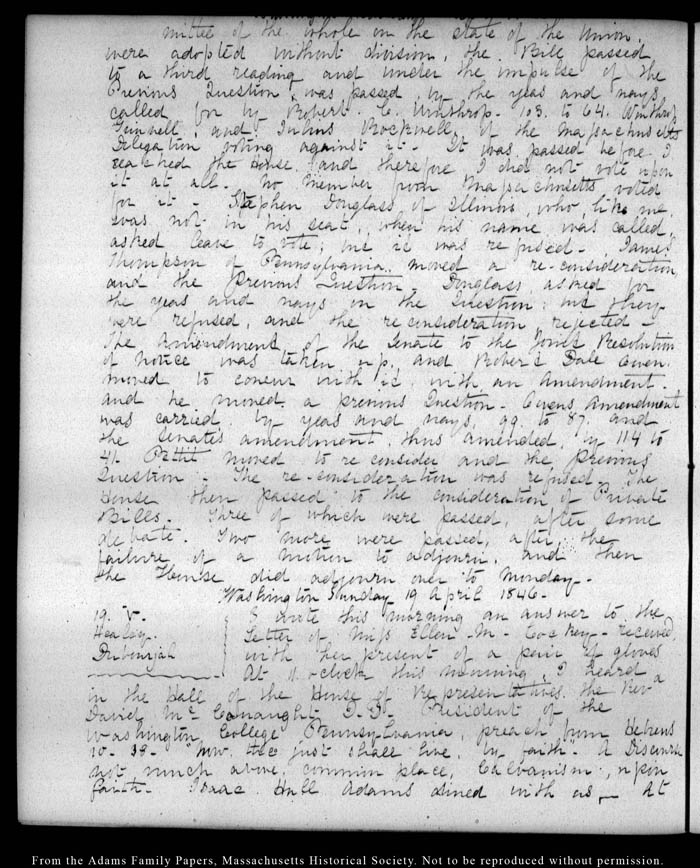 mittee of the whole on the state of the Union.
were adopted without division, the Bill passed
to a third reading and under the impulse of the
Previous Question, was passed by the yeas and nays
called for by Robert C. Winthrop. 103. to 64. Winthrop
Grinnell, and Julius Rockwell, of the Massachusetts
Delegation voting against it - It was passed before I
reached the House, and therefore I did not vote upon
it at all. No member from Massachusetts, voted
for it - Stephen Douglass, of Illinois, who, like me,
was not in his seat, when his name was called,
asked leave to vote; but it was refused - James
Thompson of Pennsylvania, moved a re-consideration,
and the Previous Question - Douglass, asked for
the yeas and nays on the Question; but they
were refused, and the reconsideration rejected -
The amendment, of the Senate to the Joint Resolution
of Notice was taken up, and Robert Dale Owen,
moved to concur with it, with an Amendment.
and he moved a previous Question - Owens Amendment
was carried by yeas and nays, 99. to 87. and
the Senates amendment, thus amended, by 114 to
41. Pettit moved to re consider and the previous
Question - The re-consideration was refused - The
House then passed to the consideration of Private
Bills. Three of which were passed, after some
debate. Two more were passed, after the
failure of a motion to adjourn, and then
the House did adjourn over to Monday -
Washington Sunday 19 April 1846 -
19. V. I wrote this morning an answer to the
Healey. Letter of Miss Ellen - M - Cockey - received,
Dubourjal with her present of a pair of gloves
At 11. o'clock this morning, I heard
in the Hall of the House of Representatives, the Revd
David Mc Conaught D.D. President of the
Washington College Pennsylvania, preach from Hebrews
10. 38. "Now the just shall live by faith. A Discourse
not much above, common place, Calvanism, upon
faith - Isaac Hull Adams dined with us - At
From the Adams Family Papers, Massachusetts Historical Society. Not to be reproduced without permission.